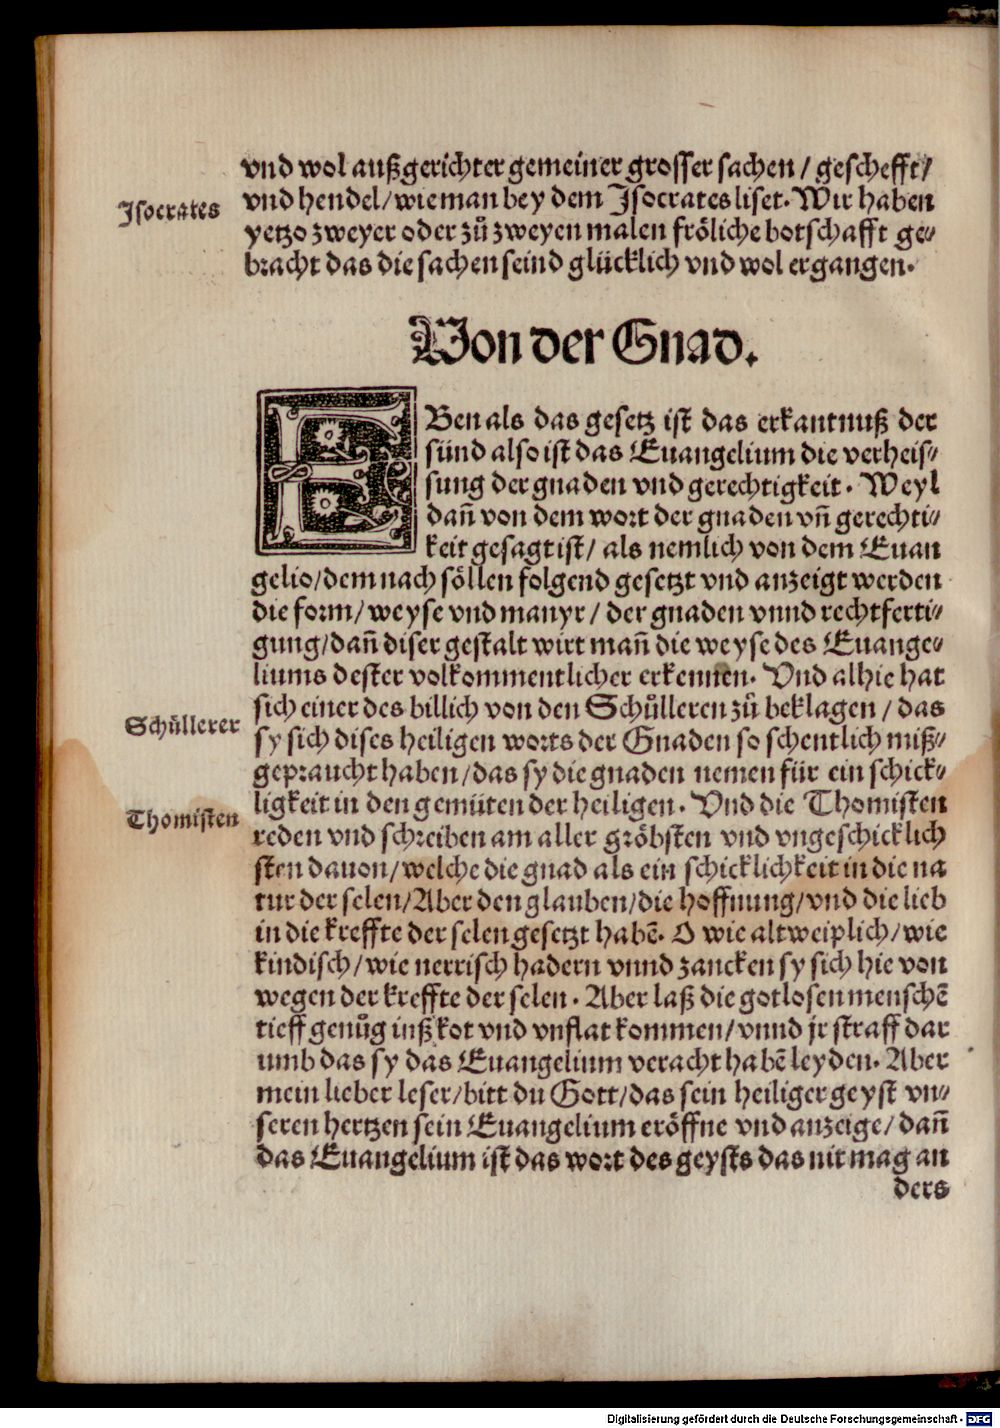 vnd wol außgerichter gemeiner grosser sachen / geschefft/
Isocrates
vnd hendel/ wie man bey dem Isocrates liset. Wir haben
yetzo zweyer oder zů zweyen malen fröliche botschafft ge⸗
bracht das die sachen seind glücklich vnd wol ergangen.
Von der Gnad.
EBen als das gesetz ist das erkantnuß der
sünd also ist das Euangelium die verheis⸗
sung der gnaden vnd gerechtigkeit. Weyl
dañ von dem wort der gnaden vñ gerechti⸗
keit gesagt ist/ als nemlich von dem Euan
gelio/ dem nach söllen folgend gesetzt vnd anzeigt werden
die form/ weyse vnd manyr / der gnaden vnnd rechtferti⸗
gung/ dañ diser gestalt wirt mañ die weyse des Euange⸗
liums dester volkommentlicher erkennen. Vnd alhie hat
Schůllerer
sich einer des billich von den Schůlleren zů beklagen / das
sy sich dises heiligen worts der Gnaden so schentlich miß⸗
gepraucht haben/ das sy die gnaden nemen für ein schick⸗
Thomisten
ligkeit in den gemüten der heiligen. Vnd die Thomisten
reden vnd schreiben am aller gröbsten vnd vngeschicklich
sten dauon/ welche die gnad als ein schicklichkeit in die na
tur der selen/ Aber den glauben/ die hoffnung/ vnd die lieb
in die kreffte der selen gesetzt habẽ. O wie altweiplich/ wie
kindisch/ wie nerrisch hadern vnnd zancken sy sich hie von
wegen der kreffte der selen. Aber laß die gotlosen menschẽ
tieff genůg inß kot vnd vnflat kommen/ vnnd jr straff dar
umb das sy das Euangelium veracht habẽ leyden. Aber
mein lieber leser/ bitt du Gott/ das sein heiliger geyst vn⸗
seren hertzen sein Euangelium eröffne vnd anzeige/ dañ
das Euangelium ist das wort des geysts das nit mag an
ders
Digitalisierung gefördert durch die Deutsche Forschungsgemeinschaft - DFG